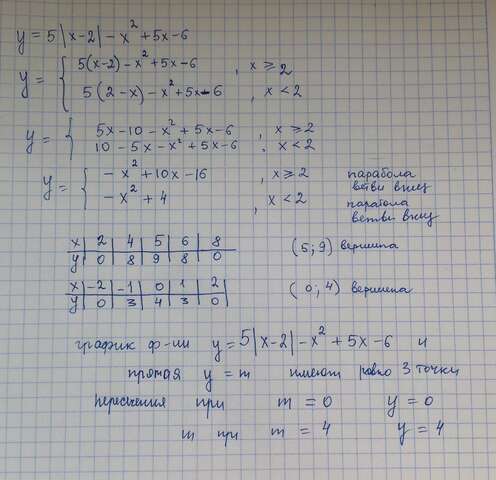 y = 5|x-2| - x² + 5x - 6
y = { 5(x-2) - x² + 5x - 6 , x ≥ 2
5(2-x) - x² + 5x - 6 , x < 2
y = { 5x - 10 - x² + 5x - 6 , x ≥ 2
10 - 5x - x² + 5x - 6 , x < 2
y = { - x² + 10x - 16 , x ≥ 2 парабола ветви вниз
- x² + 4 , x < 2 парабола ветви вниз
x | 2 | 4 | 5 | 6 | 8
y | 0 | 8 | 9 | 8 | 0
(5; 9) вершина
x | -2 | -1 | 0 | 1 | 2
y | 0 | 3 | 4 | 3 | 0
(0; 4) вершина
график ф-ии y = 5|x-2| - x² + 5x - 6 и
прямая y = m имеют ровно 3 точки
пересечения при m = 0 y = 0
и при m = 4 y = 4